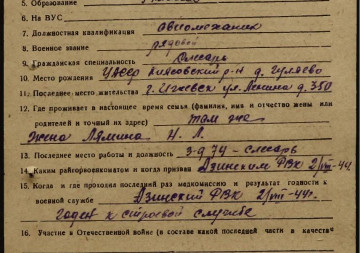 5. Образование
6. На ВУС
7. Должностная квалификация авиомеханик
8. Военное звание рядовой
9. Гражданская специальность Слесарь
10. Место рождения УАССР Киясовский р-н д. Гуляево
11. Последнее место жительства г. Ижевск ул. Ленина д. 350
12. Где проживает в настоящее время семья (фамилия, имя и отчество жены или
родителей и точный их адрес) там же
Жена Лямина Н. Л.
13. Последнее место работы и должность 3-д 74 - слесарь
14. Каким райгорвоенкоматом и когда призван Азинским РВК 2/VIII-44
15. Когда и где проходил последний раз медкомиссию и результат годности к
военной службе Азинский РВК 2/VIII-44г.
Годен к строевой службе
16. Участие в Отечественной войне (в составе какой последней части и в качестве